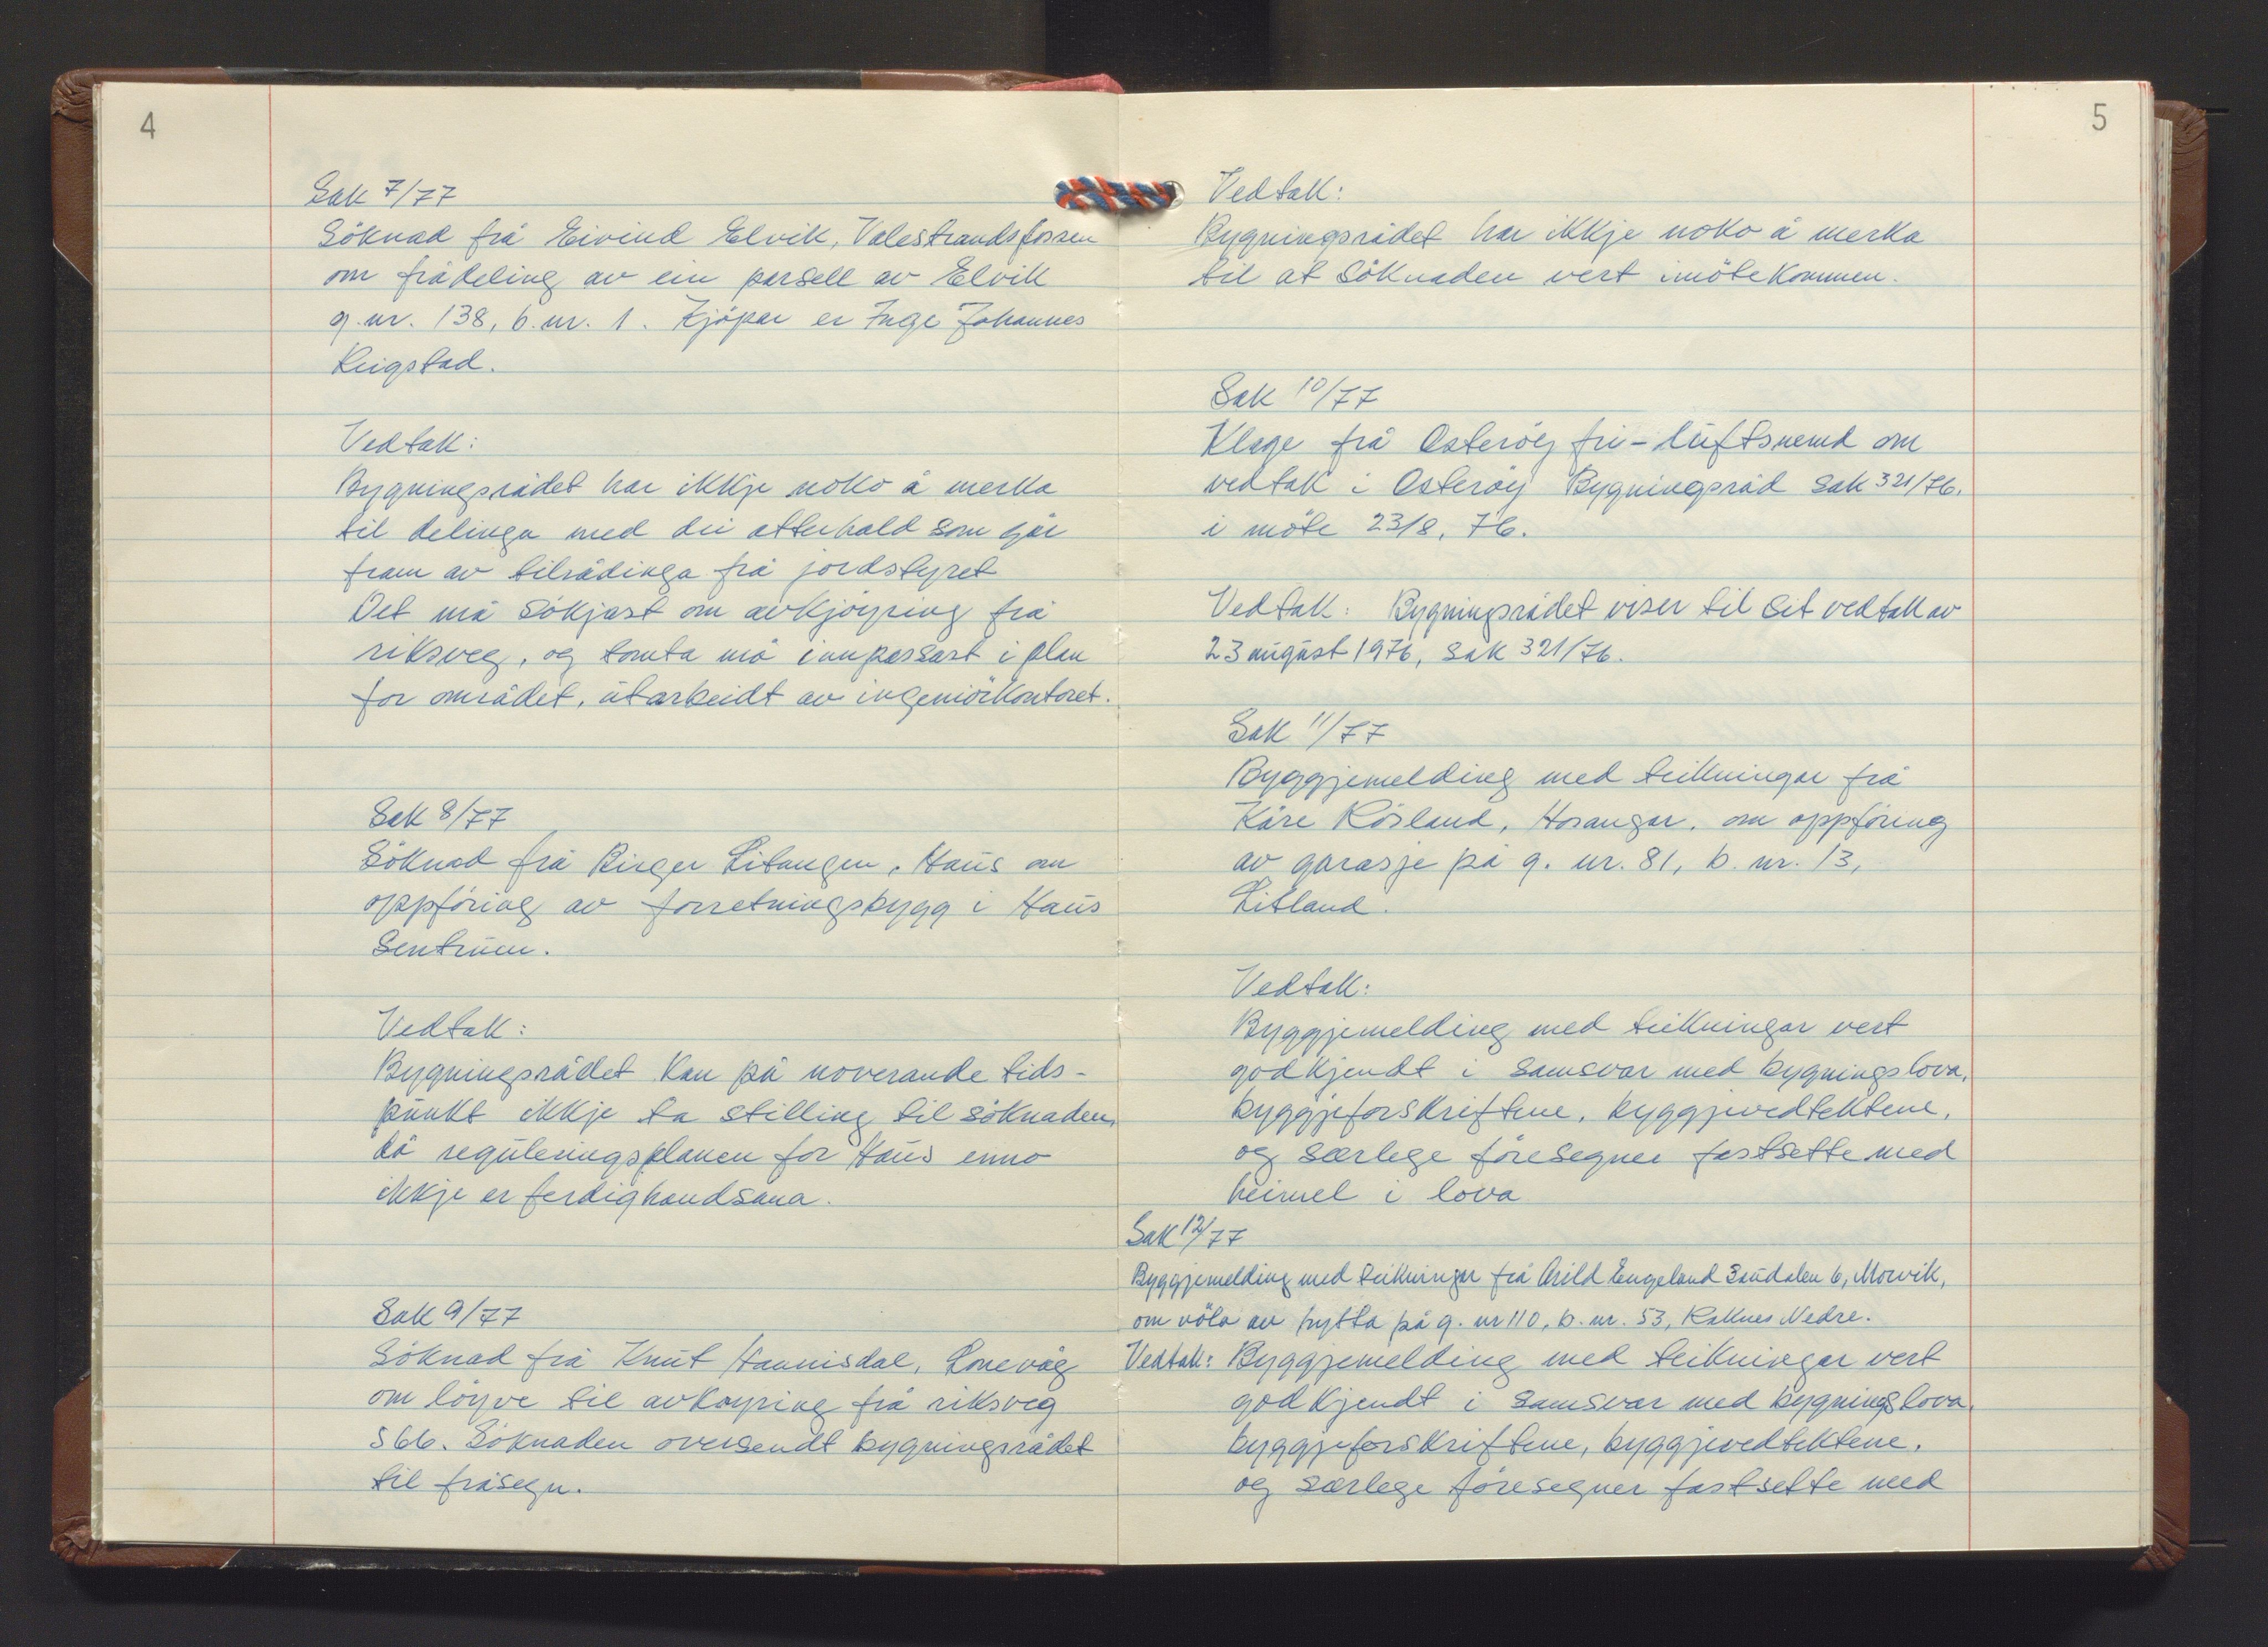 4
Sak 7/77
Söknad frå Eivind Elvik, Valestrandsfossen
om frådeling av ein parsell av Elvik
g.nr. 138, b.nr. 1. Kjöpar er Inge Johannes
Reigstad.
Vedtak:
Bygningsrådet har ikkje noko å merka
til delinga med dei atterhald som går
fram av tilrådinga frå jordstyret
Det må sökjast om avkjöyring frå
riksveg, og tomta må innpassast i plan
for området, utarbeidt av ingeniörkontoret.
Sak 8/77
Söknad frå Birger Litangen, Haus om
oppföring av forretningsbygg i Haus
Sentrum.
Vedtak:
Bygningsrådet kan på noverande tids-
punkt ikkje ta stilling til söknaden,
då reguleringsplanen for Haus enno
ikkje er ferdighandsama.
Sak 9/77
Söknad frå Knut Hannisdal, Lonevåg
om löyve til avköyring frå riksveg
566. Söknaden oversendt bygningsrådet
til fråsegn.
5
Vedtak:
Bygningsrådet har ikkje noko å merka
til at söknaden vert imötekommen.
Sak 10/77
Klage frå Osteröy fri-luftsnemd om
vedtak i Osteröy Bygningsråd sak 321/76.
i möte 23/8, 76.
Vedtak: Bygningsrådet viser til sit vedtak av
23 august 1976, sak 321/76.
Sak 11/77
Byggjemelding med teikningar frå
Kåre Rösland, Hosangar, om oppföring
av garasje på g. nr. 81, b. nr. 13,
Litland.
Vedtak:
Byggjemelding med teikningar vert
godkjendt i samsvar med bygningslova,
byggjeforskriftene, byggjevedtektene,
og særlege föresegner fastsette med
heimel i lova
Sak 12/77
Byggjemelding med teikningar frå Arild Engeland Saudalen 6, Morvik,
om völa av hytta på g. nr 110, b. nr. 53, Raknes Nedre.
Vedtak: Byggjemelding med teikningar vert
godkjendt i samsvar med bygningslova,
byggjeforskriftene, byggjevedtektene,
og særlege föresegner fastsette med